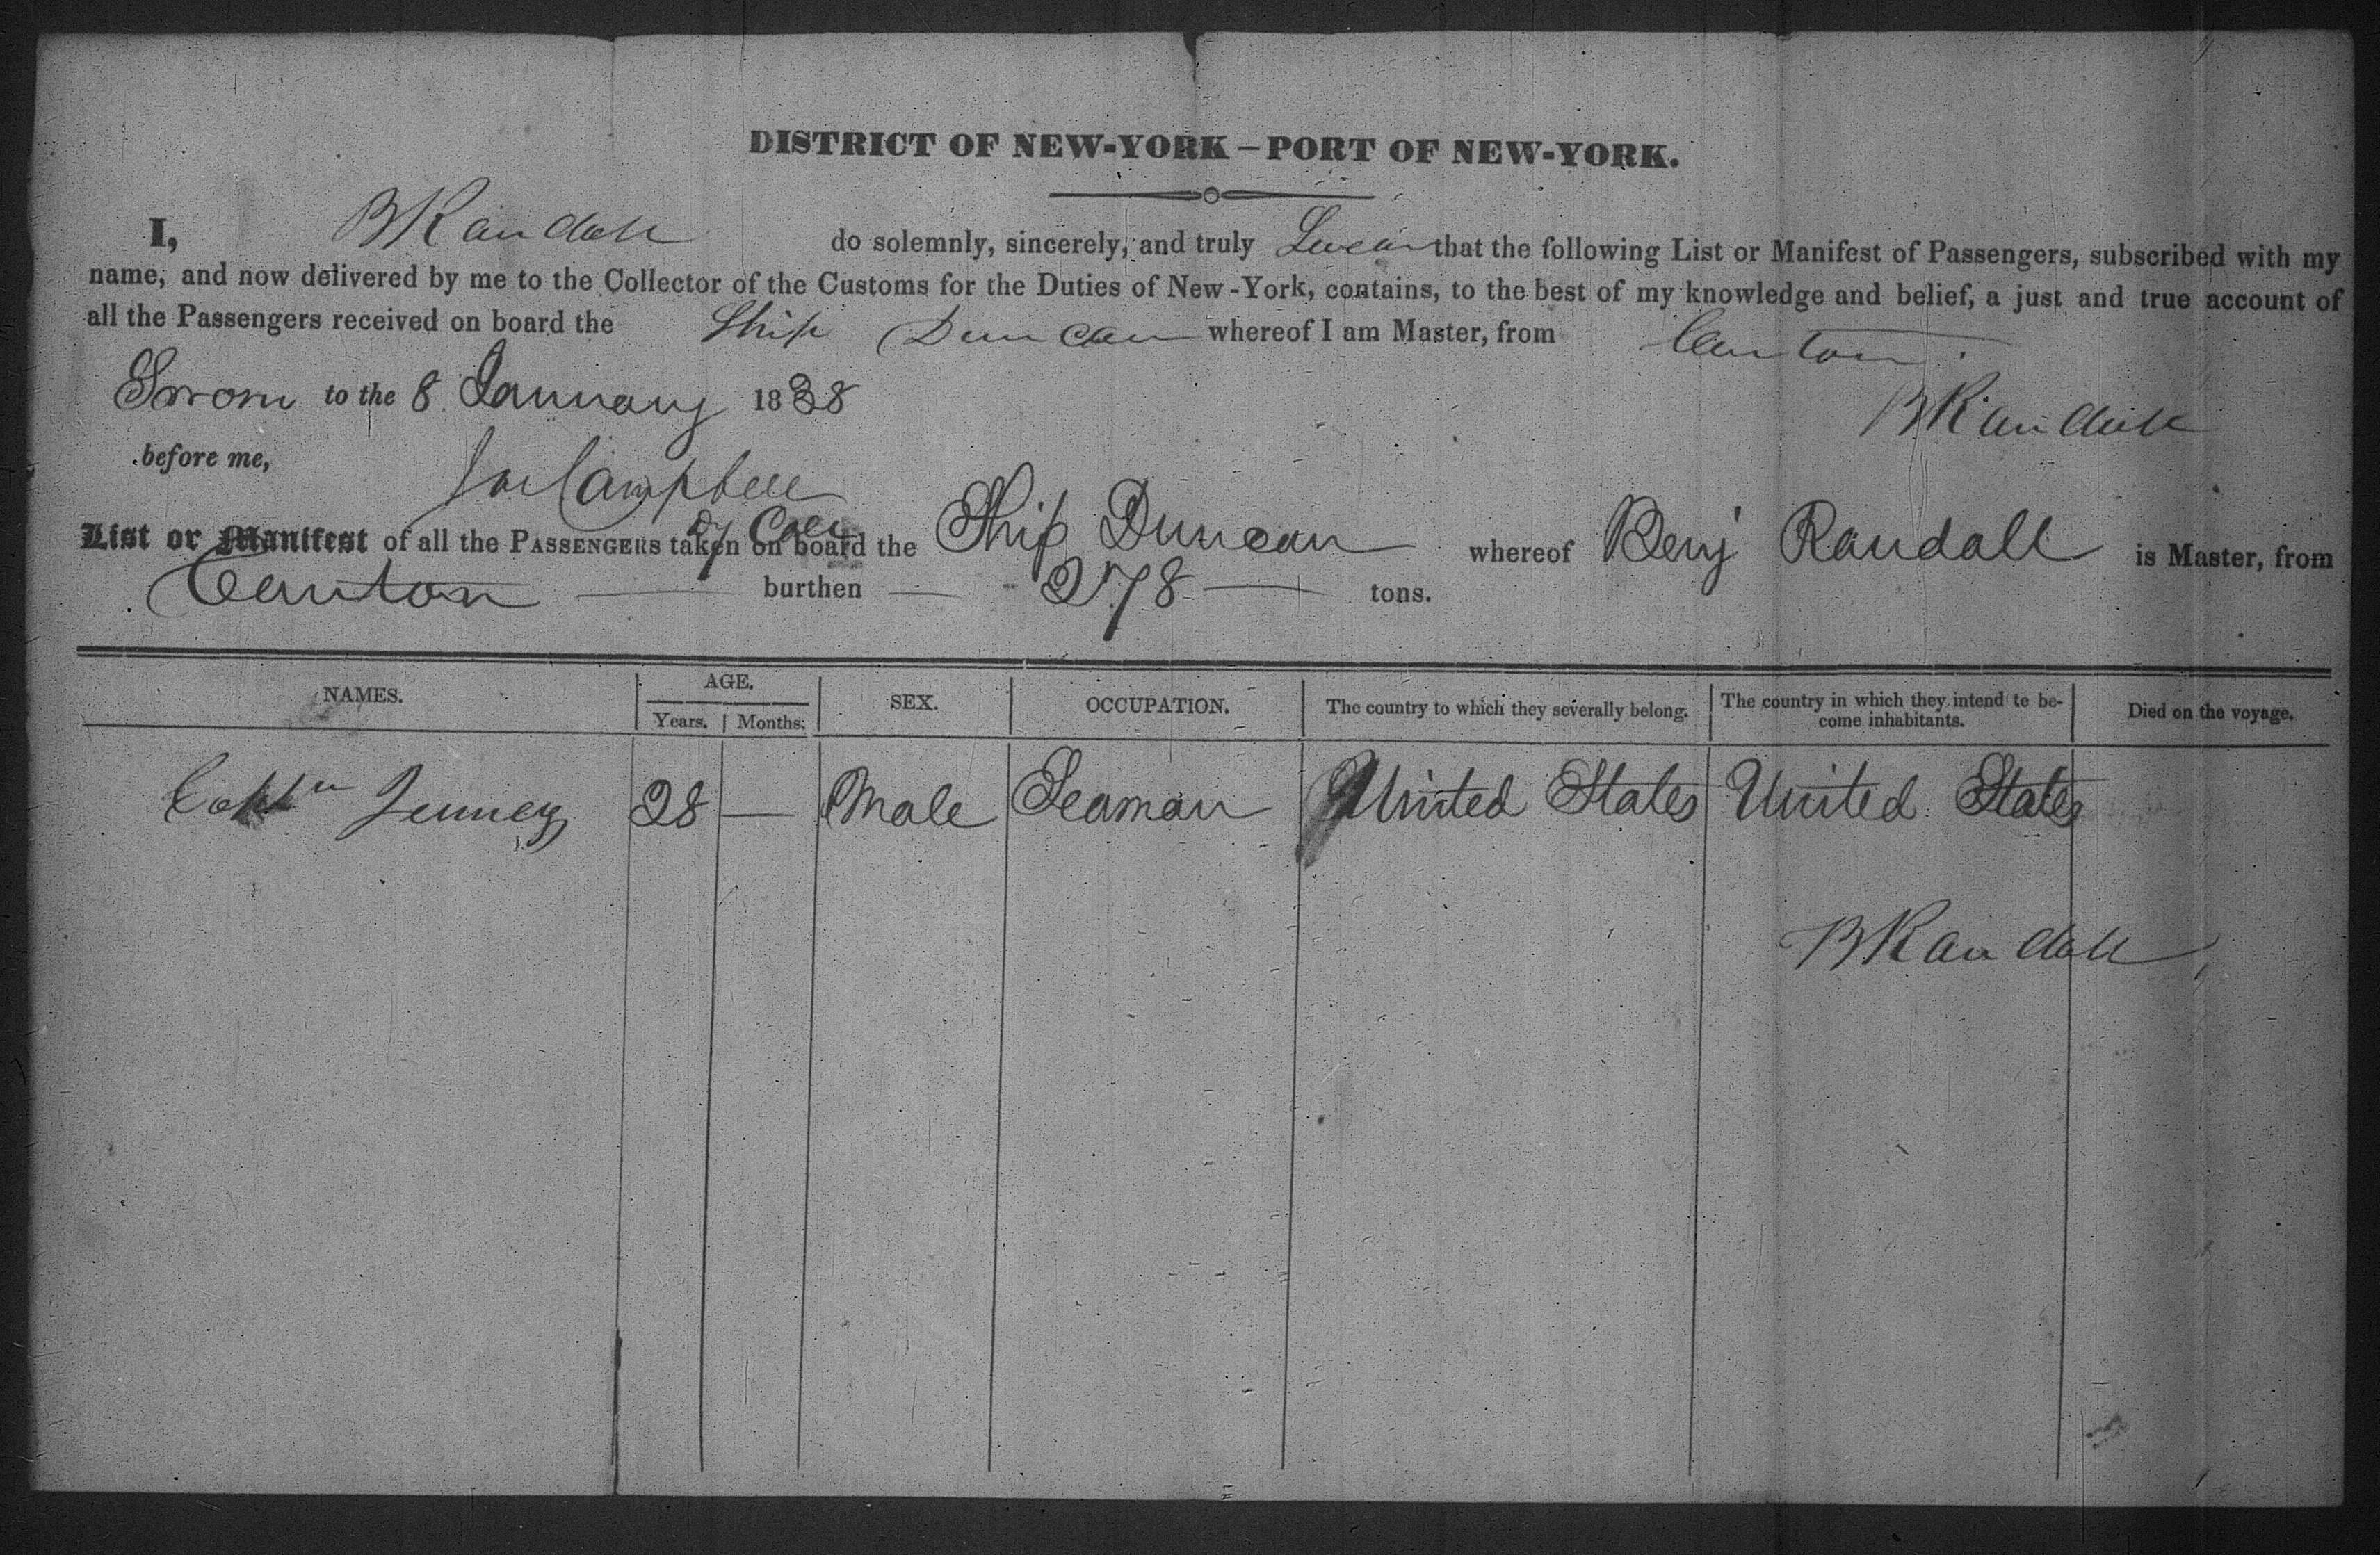 DISTRICT OF NEW-YORK — PORT OF NEW-YORK.
I, B Randall do solemnly, sincerely, and truly Swear that the following List or Manifest of Passengers, subscribed with my
name, and now delivered by me to the Collector of the Customs for the Duties of New-York, contains, to the best of my knowledge and belief, a just and true account of
all the Passengers received on board the Ship Duncan whereof I am Master, from Canton.
Sworn to the 8 January 1838
B Randall
before me,
Campbell
Dy Coll
List or Manifest of all the PASSENGERS taken on board the Ship Duncan whereof Benj Randall is Master, from
Canton burthen 278 tons.
NAMES. AGE. SEX. OCCUPATION. The country to which they severally belong. The country in which they intend to be-
come inhabitants. Died on the voyage.
Years. Months.
Captn Jenney 28 — Male Seaman United States United States
B Randall